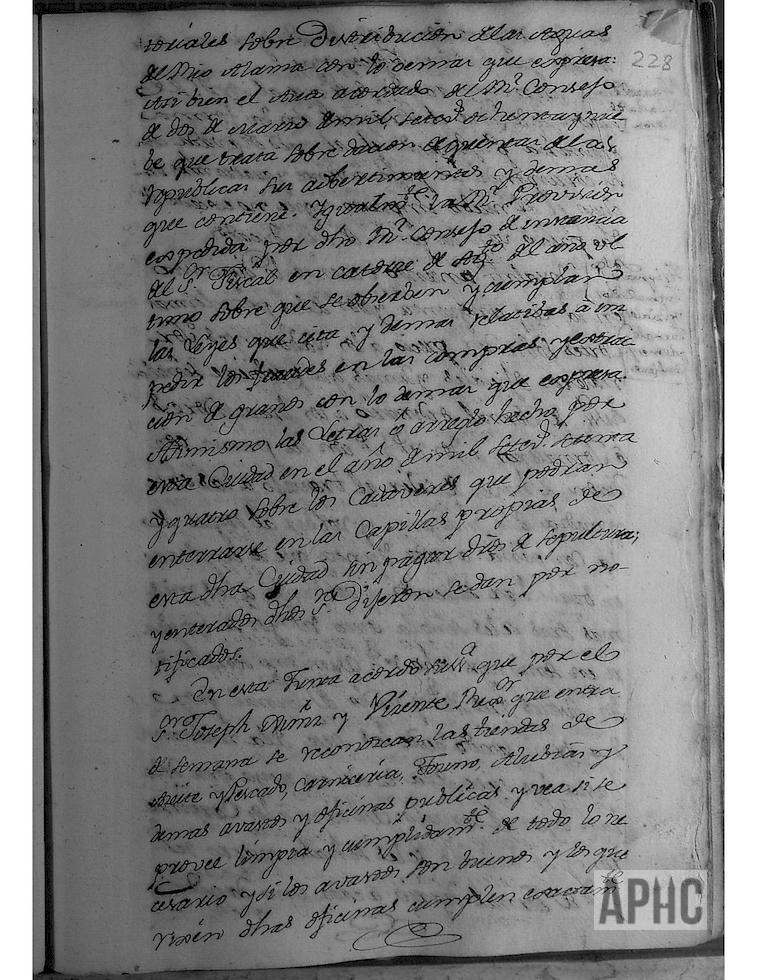 228
toriales sobre Distribucion de las Aguas
del Rio Alama con lo demas que expresa:
Asi bien el Auto acordado del Rl. Consejo
de dos de Marzo de mil setecs. ochenta y nue
be que trata sobre dacion de quentas de las
Republicas sus advertimientos y demas
que contiene. Igualmte. la Rl. Provision
expedida por dho Rl. Consejo de instancia
del Sr. Fiscal en catorce de Agto. del año ul
timo sobre que se obserben y cumplan
las Leyes que cita y demas relatibas à im
pedir los fraudes en las compras y extrac
cion de granos con lo demas que expresa.
Asimismo las Letras ó arreglo hecho por
esta Ciudad en el año de mil setecs. setenta
y quatro sobre los Cadaveres que podran
enterrarse en las Capillas propias de
esta dha Ciudad sin pagar dros de sepultura;
y enterados dhos Sres. Dijeron se dan por no-
tificados.
En esta Junta acordó su Sa. que por el
Sr. Joseph Muñiz y Vizente que entra
de semana se reconozcan las tiendas de
Azeite y Pescado, Carniceria, Forno, y
demas avastos y oficinas publicas y vea si se
provee limpia y cumplidamte. de todo lo ne
cesario y si los avastos son buenos y los que
rixen dhas oficinas cumplen exactamte.
APHC